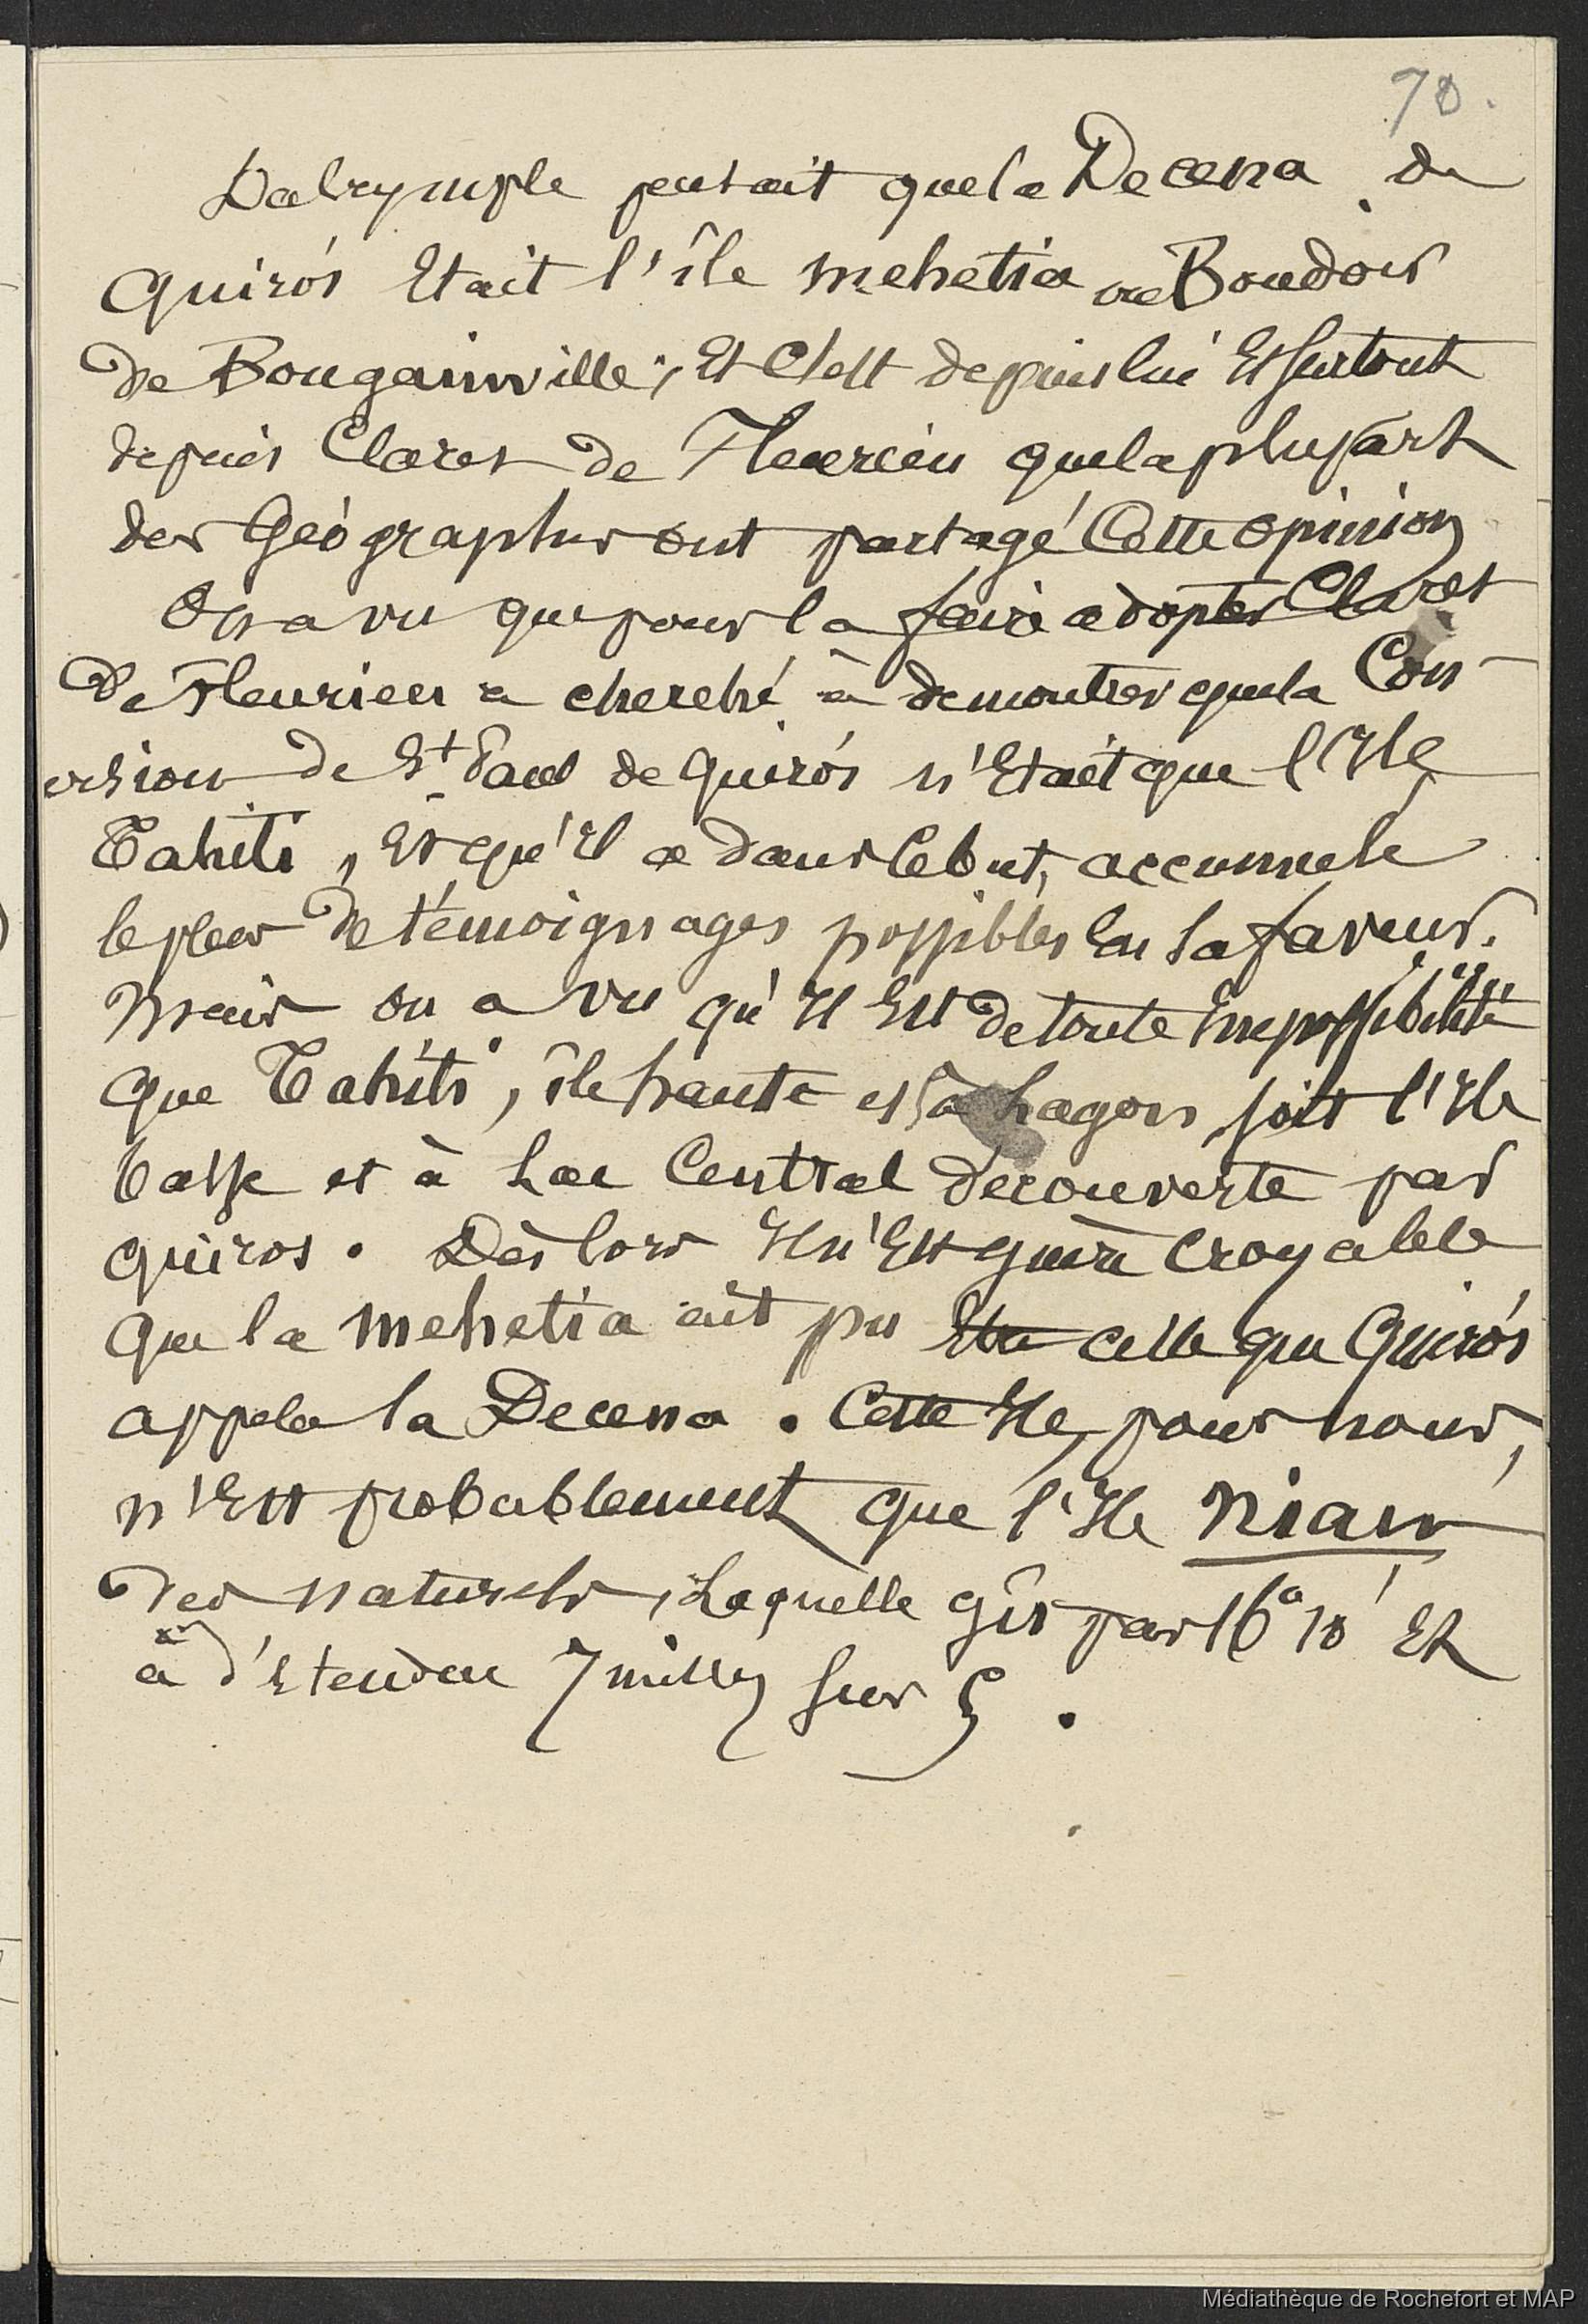 70.
Dalrymple pensait que la Decena de
Quirós Etait l'île Mehetia ou Boudoir
de Bougainville ; Et C'est depuis lui Et surtout
depuis Claret de Fleurieu que la plupart
des Géographes ont partagé Cette opinion
On a vu que pour la faire adopter Claret
De Fleurieu a cherché à demontrer que la Con-
version de St Paul de Quirós n'Etait que l'Ile
Tahiti, Et qu'Il a dans ce but, accumulé
le plus de témoignages possibles En sa faveur.
Mais on a vu qu'Il Est de toute Impossibilité
que Tahiti, île haute et à Lagon, soit l'Ile
basse et à Lac Central découverte par
Quiros. Dès lors Il n'Est guère Croyable
que la Mehetia ait pu Etre celle que Quirós
appela la Decena. Cette Ile, pour nous,
n'Est probablement que l'Ile Niau
des naturels, Laquelle gît par 16° 10' Et
a d'Etendue 7 milles sur 5.
Médiathèque de Rochefort et MAP